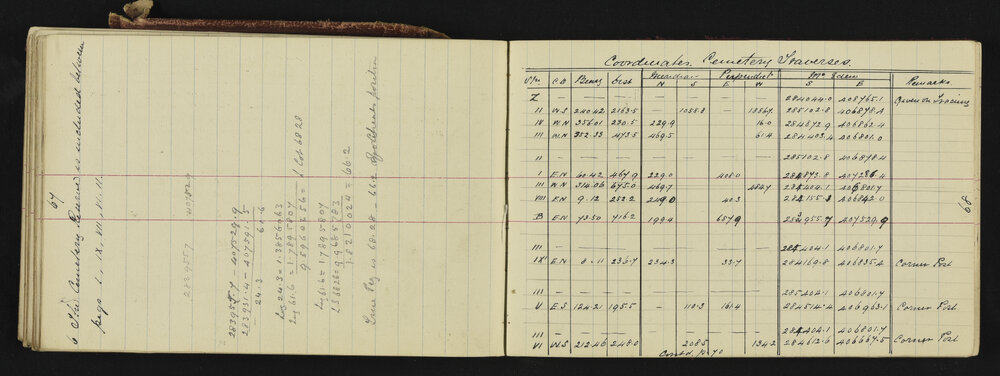 67
6 The Cemetery Reserve is included between
pegs I. IX. VIII. VI. II.
283955.7 - 407529.9
283931.4 - 407591.5
24.3 61.6
Log 24.3 = 1.3856063
Log 61.6 = 1.7895807
9.5960256 = L Cot 68 28
Log 61.6 = 1.7895807
LS 6828 = 9.9685783
1.8210024 = 66.2
True Peg is 68.28 - 66.2
Coordinates Cemetery Traverses.
Stn. Bearg Dist Meridian Perpendict Mt Eden Remarks
N S E W S E
Z — — — — — — 284044.0 408765.1 Given on Tracing
II W S 240 42 2163.5 — 1058.8 — 1886.7 285102.8 406878.4
IV W N 356 01 230.5 229.9 16.0 284872.9 406862.4
III W N 352.33 473.5 469.5 61.4 284403.4 406801.0
II — — — — — — 285102.8 406878.4
I E N 60.42 467.9 229.0 408.0 284873.8 407286.4
III W N 314.06 675.0 469.7 484.7 284404.1 406801.7
VIII E N 9.12 252.2 249.0 40.3 284155.3 406842.0
B E N 73.50 716.2 199.4 687.9 283955.7 407529.9
III — — — — — — 284404.1 406801.7
IX E N 8.11 236.7 234.3 33.7 284169.8 406835.4 Corner Post
III — — — — — — 284404.1 406801.7
V E S 124.21 195.5 — 110.3 161.4 284514.4 406963.1 Corner Post
III — — — — — — 284404.1 406801.7
VI W S 212 46 248.0 208.5 134.2 284612.6 406667.5 Corner Post
Contd. p. 70
68